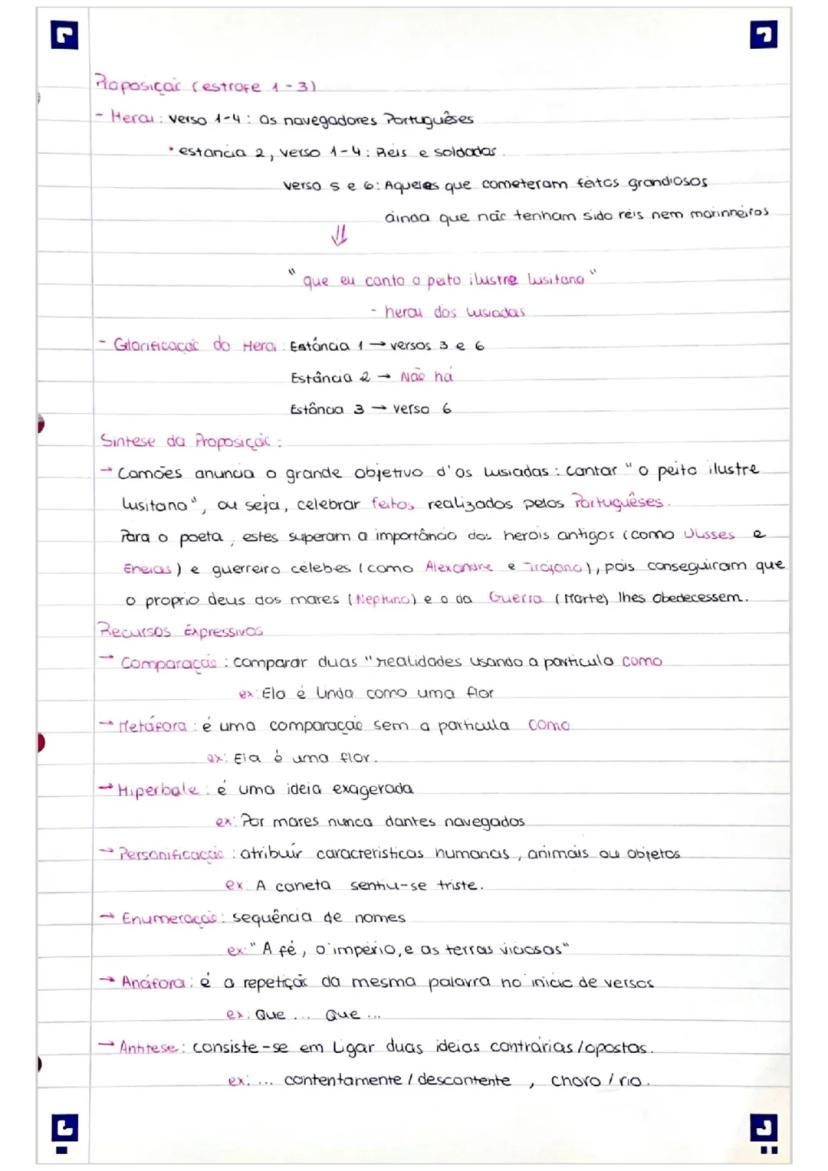 Proposição (estrofe 1-3)
- Herói: verso 1-4: Os navegadores Portuguêses
• estancia 2, verso 1-4: Reis e soldados.
verso 5 e 6: Aqueles que cometeram feitos grandiosos
ainda que não tenham sido reis nem marinheiros
⇓
"que eu canto o peito ilustre lusitano"
- herói dos lusiadas
- Glorificação do Herói: Estância 1 → versos 3 e 6
Estância 2 → Não há
Estância 3 → verso 6
Síntese da Proposição:
→ Camões anuncia o grande objetivo d'os lusiadas: cantar "o peito ilustre
lusitano", ou seja, celebrar feitos realizados pelos Portuguêses.
Para o poeta, estes superam a importância dos herois antigos (como Ulisses e
Eneias) e guerreiro celebes (como Alexandre e Trajano), pois conseguiram que
o proprio deus dos mares (Neptuno) e o da Guerra (Marte) lhes obedecessem.
Recursos Expressivos
→ Comparação: comparar duas "realidades usando a particula como
ex: Ela é linda como uma flor
→ Metáfora: é uma comparação sem a particula como
ex: Ela é uma flor.
→ Hiperbole: é uma ideia exagerada
ex: Por mares nunca dantes navegados
→ Personificação: atribuir caracteristicas humanas, animais ou objetos
ex: A caneta sentiu-se triste.
→ Enumeração: sequência de nomes
ex: "A fé, o império, e as terras viciosas"
→ Anáfora: é a repetição da mesma palavra no inicio de versos
ex: Que ... Que ...
→ Antitese: consiste-se em Ligar duas ideias contrárias/opostas.
ex: ... contentamente / descontente, choro / rio.